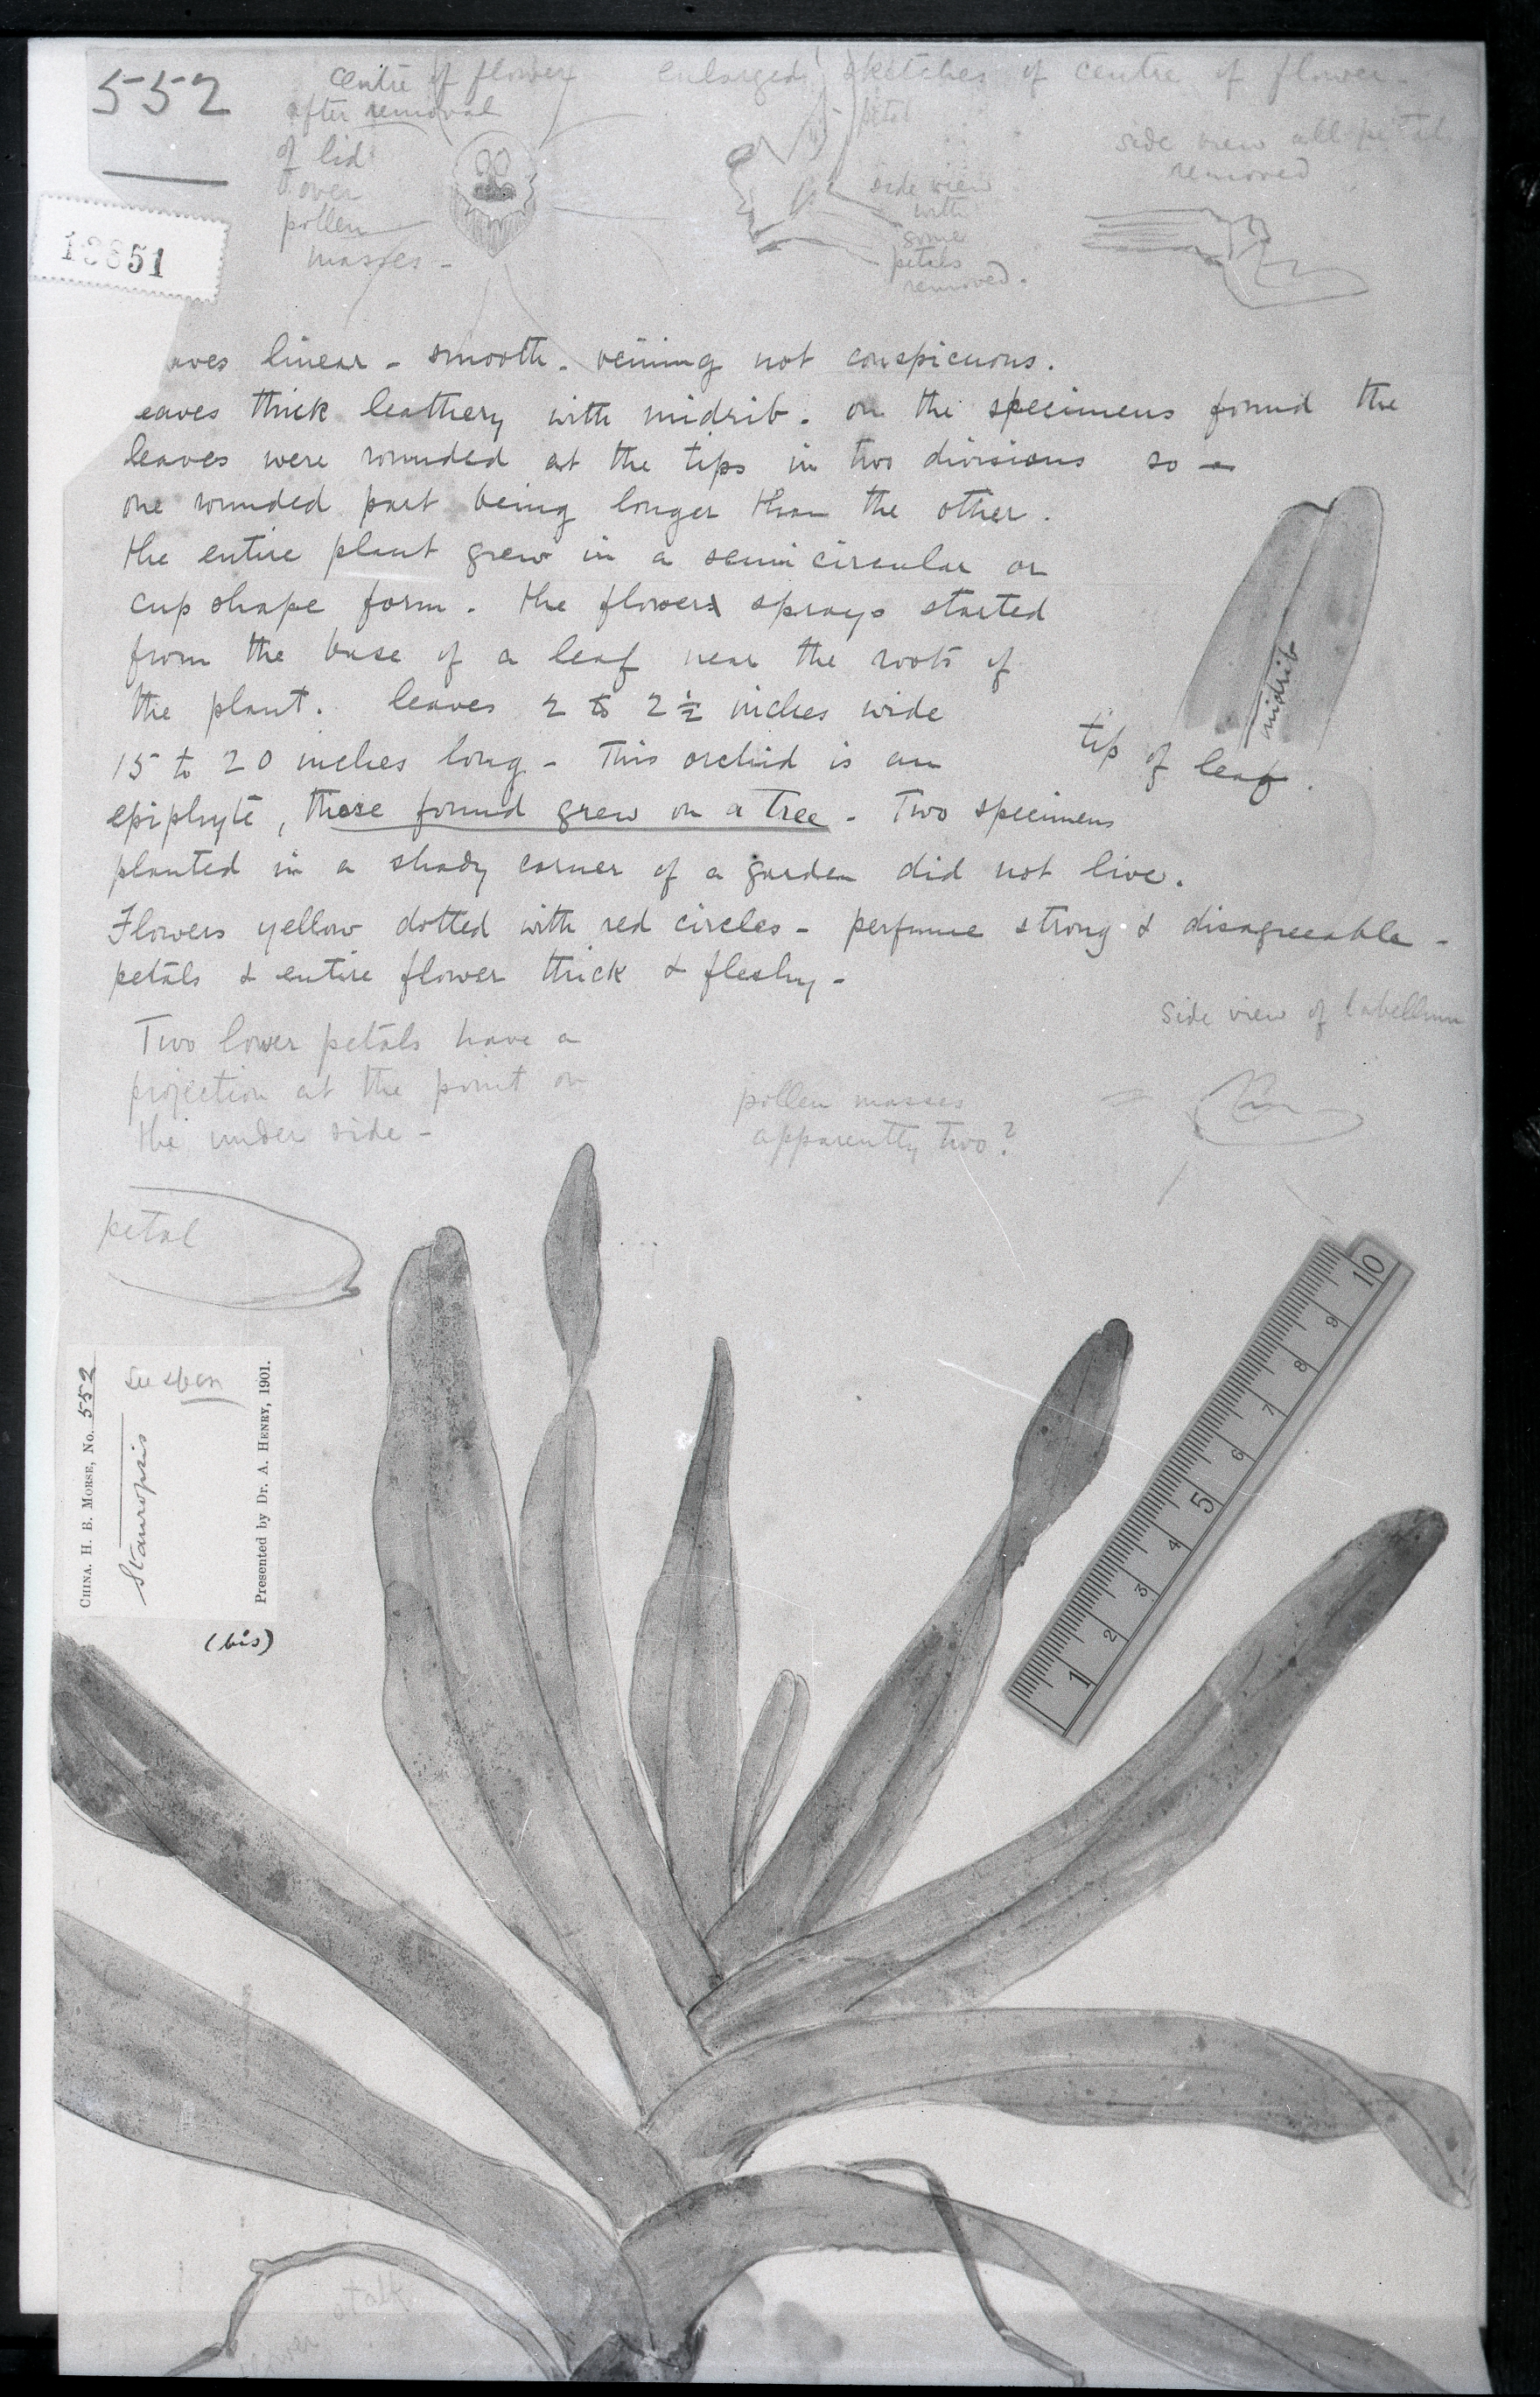 552
centre of flower
after removal
of lid
over
pollen
masses -
enlarged sketches of centre of flower
petal
side view
with
some
petals
removed.
side view all petals
removed
13651
aves linear - smooth - veining not conspicuous.
eaves thick leathery with midrib. on the specimens found the
leaves were rounded at the tips in two divisions so -
one rounded part being longer than the other.
the entire plant grew in a semi circular or
cup shape form. the flower sprays started
from the base of a leaf near the roots of
the plant. leaves 2 to 2½ inches wide
15 to 20 inches long - This orchid is an
epiphyte, those found grew on a tree - Two specimens
planted in a shady corner of a garden did not live.
Flowers yellow dotted with red circles - perfume strong & disagreeable -
petals & entire flower thick & fleshy -
midrib
tip of leaf.
Two lower petals have a
projection at the point on
the under side -
pollen masses
apparently two?
side view of labellum
petal
CHINA. H. B. MORSE, No. 552
Stauropsis
Presented by Dr. A. HENRY, 1901.
(bis)
1 2 3 4 5 6 7 8 9 10
flower stalk